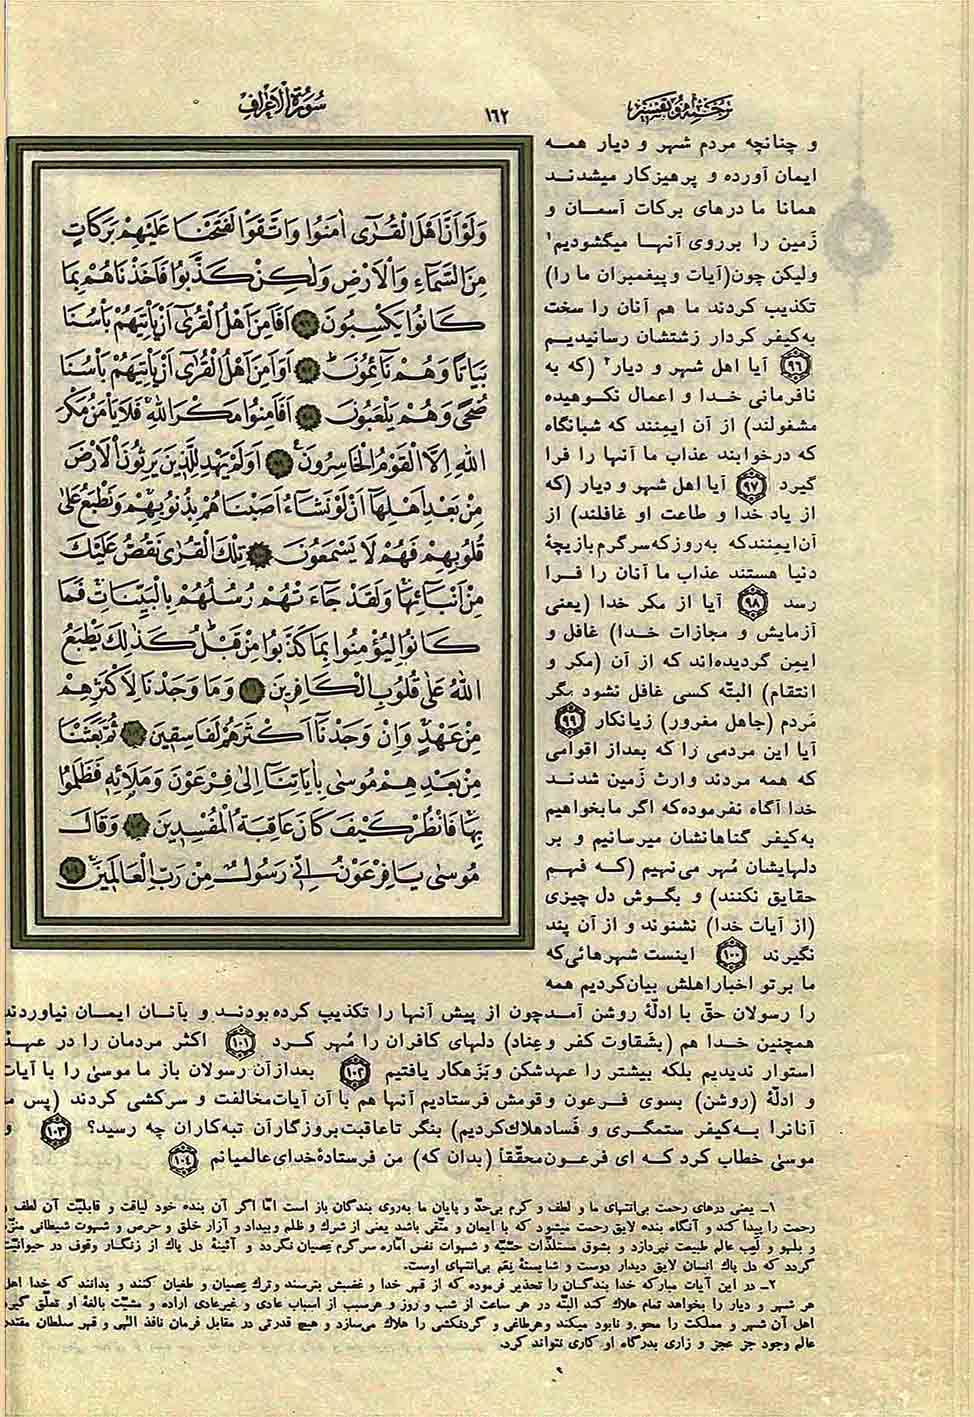 ترجمه و تفسیر
١٦٢
سورة الاعراف
و چنانچه مردم شهر و دیار همه
ایمان آورده و پرهیزکار میشدند
همانا ما درهای برکات آسمان و
زَمین را برروی آنها میگشودیم۱
ولیکن چون(آیات وپیغمبران ما را)
تکذیب کردند ما هم آنان را سخت
به‌کیفر کردار زشتشان رسانیدیم
(۹۶) آیا اهل شهر و دیار۲ (که به
نافرمانی خدا و اعمال نکوهیده
مشغولند) از آن ایمِنند که شبانگاه
که درخوابند عذاب ما آنها را فرا
گیرد (۹۷) آیا اهل شهر و دیار (که
از یاد خدا و طاعت او غافلند) از
آن‌ایمِنندکه به‌روزکه‌سرگرم‌بازیچهٔ
دنیا هستند عذاب ما آنان را فرا
رسد (۹۸) آیا از مکر خدا (یعنی
آزمایش و مجازات خدا) غافل و
ایمِن گردیده‌اند که از آن (مکر و
انتقام) البتّه کسی غافل نشود مگر
مَردم (جاهل مغرور) زیانکار (۹۹)
آیا این مردمی را که بعداز اقوامی
که همه مردند وارث زَمین شدند
خدا آگاه نفرموده‌که اگر مابخواهیم
به‌کیفر گناهانشان میرسانیم و بر
دلهایشان مُهر می‌نهیم (که فهم
حقایق نکنند) و بگوش دل چیزی
(از آیات خدا) نشنوند و از آن پند
نگیرند (۱۰۰) اینست شهرهائی‌که
ما برتو اخباراهلش بیان‌کردیم همه
را رسولان حقّ با ادلّهٔ روشن آمدچون از پیش آنها را تکذیب کرده‌بودند و بآنان ایمان نیاوردند
همچنین خدا هم (بشقاوت کفر و عِناد) دلهای کافران را مُهر کرد (۱۰۱) اکثر مردمان را در عهد
استوار ندیدیم بلکه بیشتر را عهدشکن وبَزَهکار یافتیم (۱۰۲) بعدازآن رسولان باز ما موسیٰ را با آیات
و ادلّهٔ (روشن) بسوی فرعون وقومش فرستادیم آنها هم با آن آیات‌مخالفت و سرکشی کردند (پس ما
آنانرا به‌کیفر ستمگری و فَسادهلاك‌کردیم) بنگر تاعاقبت‌بروزگارآن تبه‌کاران چه رسید؟ (۱۰۳) و
موسیٰ خطاب کرد که ای فرعون‌محقّقاً (بدان که) من فرستادهٔ‌خدای‌عالمیانم (۱۰۴)
وَلَوْ أَنَّ أَهْلَ الْقُرٰىٓ اٰمَنُوا وَاتَّقَوْا لَفَتَحْنَا عَلَيْهِمْ بَرَكَاتٍ
مِنَ السَّمَآءِ وَالْأَرْضِ وَلٰكِنْ كَذَّبُوا فَأَخَذْنَاهُمْ بِمَا
كَانُوا يَكْسِبُونَ أَفَأَمِنَ أَهْلُ الْقُرٰىٓ أَنْ يَأْتِيَهُمْ بَأْسُنَا
بَيَاتًا وَهُمْ نَآئِمُونَ أَوَأَمِنَ أَهْلُ الْقُرٰىٓ أَنْ يَأْتِيَهُمْ بَأْسُنَا
ضُحًى وَهُمْ يَلْعَبُونَ أَفَأَمِنُوا مَكْرَ اللّٰهِ فَلَا يَأْمَنُ مَكْرَ
اللّٰهِ إِلَّا الْقَوْمُ الْخَاسِرُونَ أَوَلَمْ يَهْدِ لِلَّذِينَ يَرِثُونَ الْأَرْضَ
مِنْ بَعْدِ أَهْلِهَآ أَنْ لَوْ نَشَآءُ أَصَبْنَاهُمْ بِذُنُوبِهِمْ وَنَطْبَعُ عَلٰى
قُلُوبِهِمْ فَهُمْ لَا يَسْمَعُونَ تِلْكَ الْقُرٰى نَقُصُّ عَلَيْكَ
مِنْ أَنْبَآئِهَا وَلَقَدْ جَآءَتْهُمْ رُسُلُهُمْ بِالْبَيِّنَاتِ فَمَا
كَانُوا لِيُؤْمِنُوا بِمَا كَذَّبُوا مِنْ قَبْلُ كَذٰلِكَ يَطْبَعُ
اللّٰهُ عَلٰى قُلُوبِ الْكَافِرِينَ وَمَا وَجَدْنَا لِأَكْثَرِهِمْ
مِنْ عَهْدٍ وَإِنْ وَجَدْنَآ أَكْثَرَهُمْ لَفَاسِقِينَ ثُمَّ بَعَثْنَا
مِنْ بَعْدِهِمْ مُوسٰى بِاٰيَاتِنَآ إِلٰى فِرْعَوْنَ وَمَلَائِهِ فَظَلَمُوا
بِهَا فَانْظُرْ كَيْفَ كَانَ عَاقِبَةُ الْمُفْسِدِينَ وَقَالَ
مُوسٰى يَا فِرْعَوْنُ إِنِّي رَسُولٌ مِنْ رَبِّ الْعَالَمِينَ
۱ـ یعنی درهای رحمت بی‌انتهای ما و لطف و کرم بی‌حدّ و پایان ما به‌روی بندگان باز است امّا اگر آن بنده خود لیاقت و قابلیّت آن لطف و
رحمت را پیدا کند و آنگاه بنده لایق رحمت میشود که با ایمان و متّقی باشد یعنی از شرك و ظلم وبیداد و آزار خلق و حرص و شهوت شیطانی منزّه
و بلهو و لَعِب عالم طبیعت نپردازد و بشوق مستلذّات حسّیّه و شهوات نفس امّاره سرگرم عِصیان نگردد و آئینهٔ دل پاك از زنگار وقوف در حیوانیّت
گردد که دل پاك انسان لایق دیدار دوست و شایستهٔ نِعَم بی‌انتهای اوست.
۲ـ در این آیات مبارکه خدا بندگان را تحذیر فرموده که از قهر خدا و غضبش بترسند وترك عِصیان و طغیان کنند و بدانند که خدا اهل
هر شهر و دیار را بخواهد تمام هلاك کند البتّه در هر ساعت از شب و روز و هرسبب از اسباب عادی و غیرعادی اراده و مشیّت بالغهٔ او تعلّق گیرد
اهل آن شهر و مملکت را محو.و نابود میکند وهرطاغی و گردنکشی را هلاك می‌سازد و هیچ قدرتی در مقابل فرمان نافذ الٰهی و قهر سلطان مقتدر
عالم وجود جز عجز و زاری بدرگاه او کاری نتواند کرد.